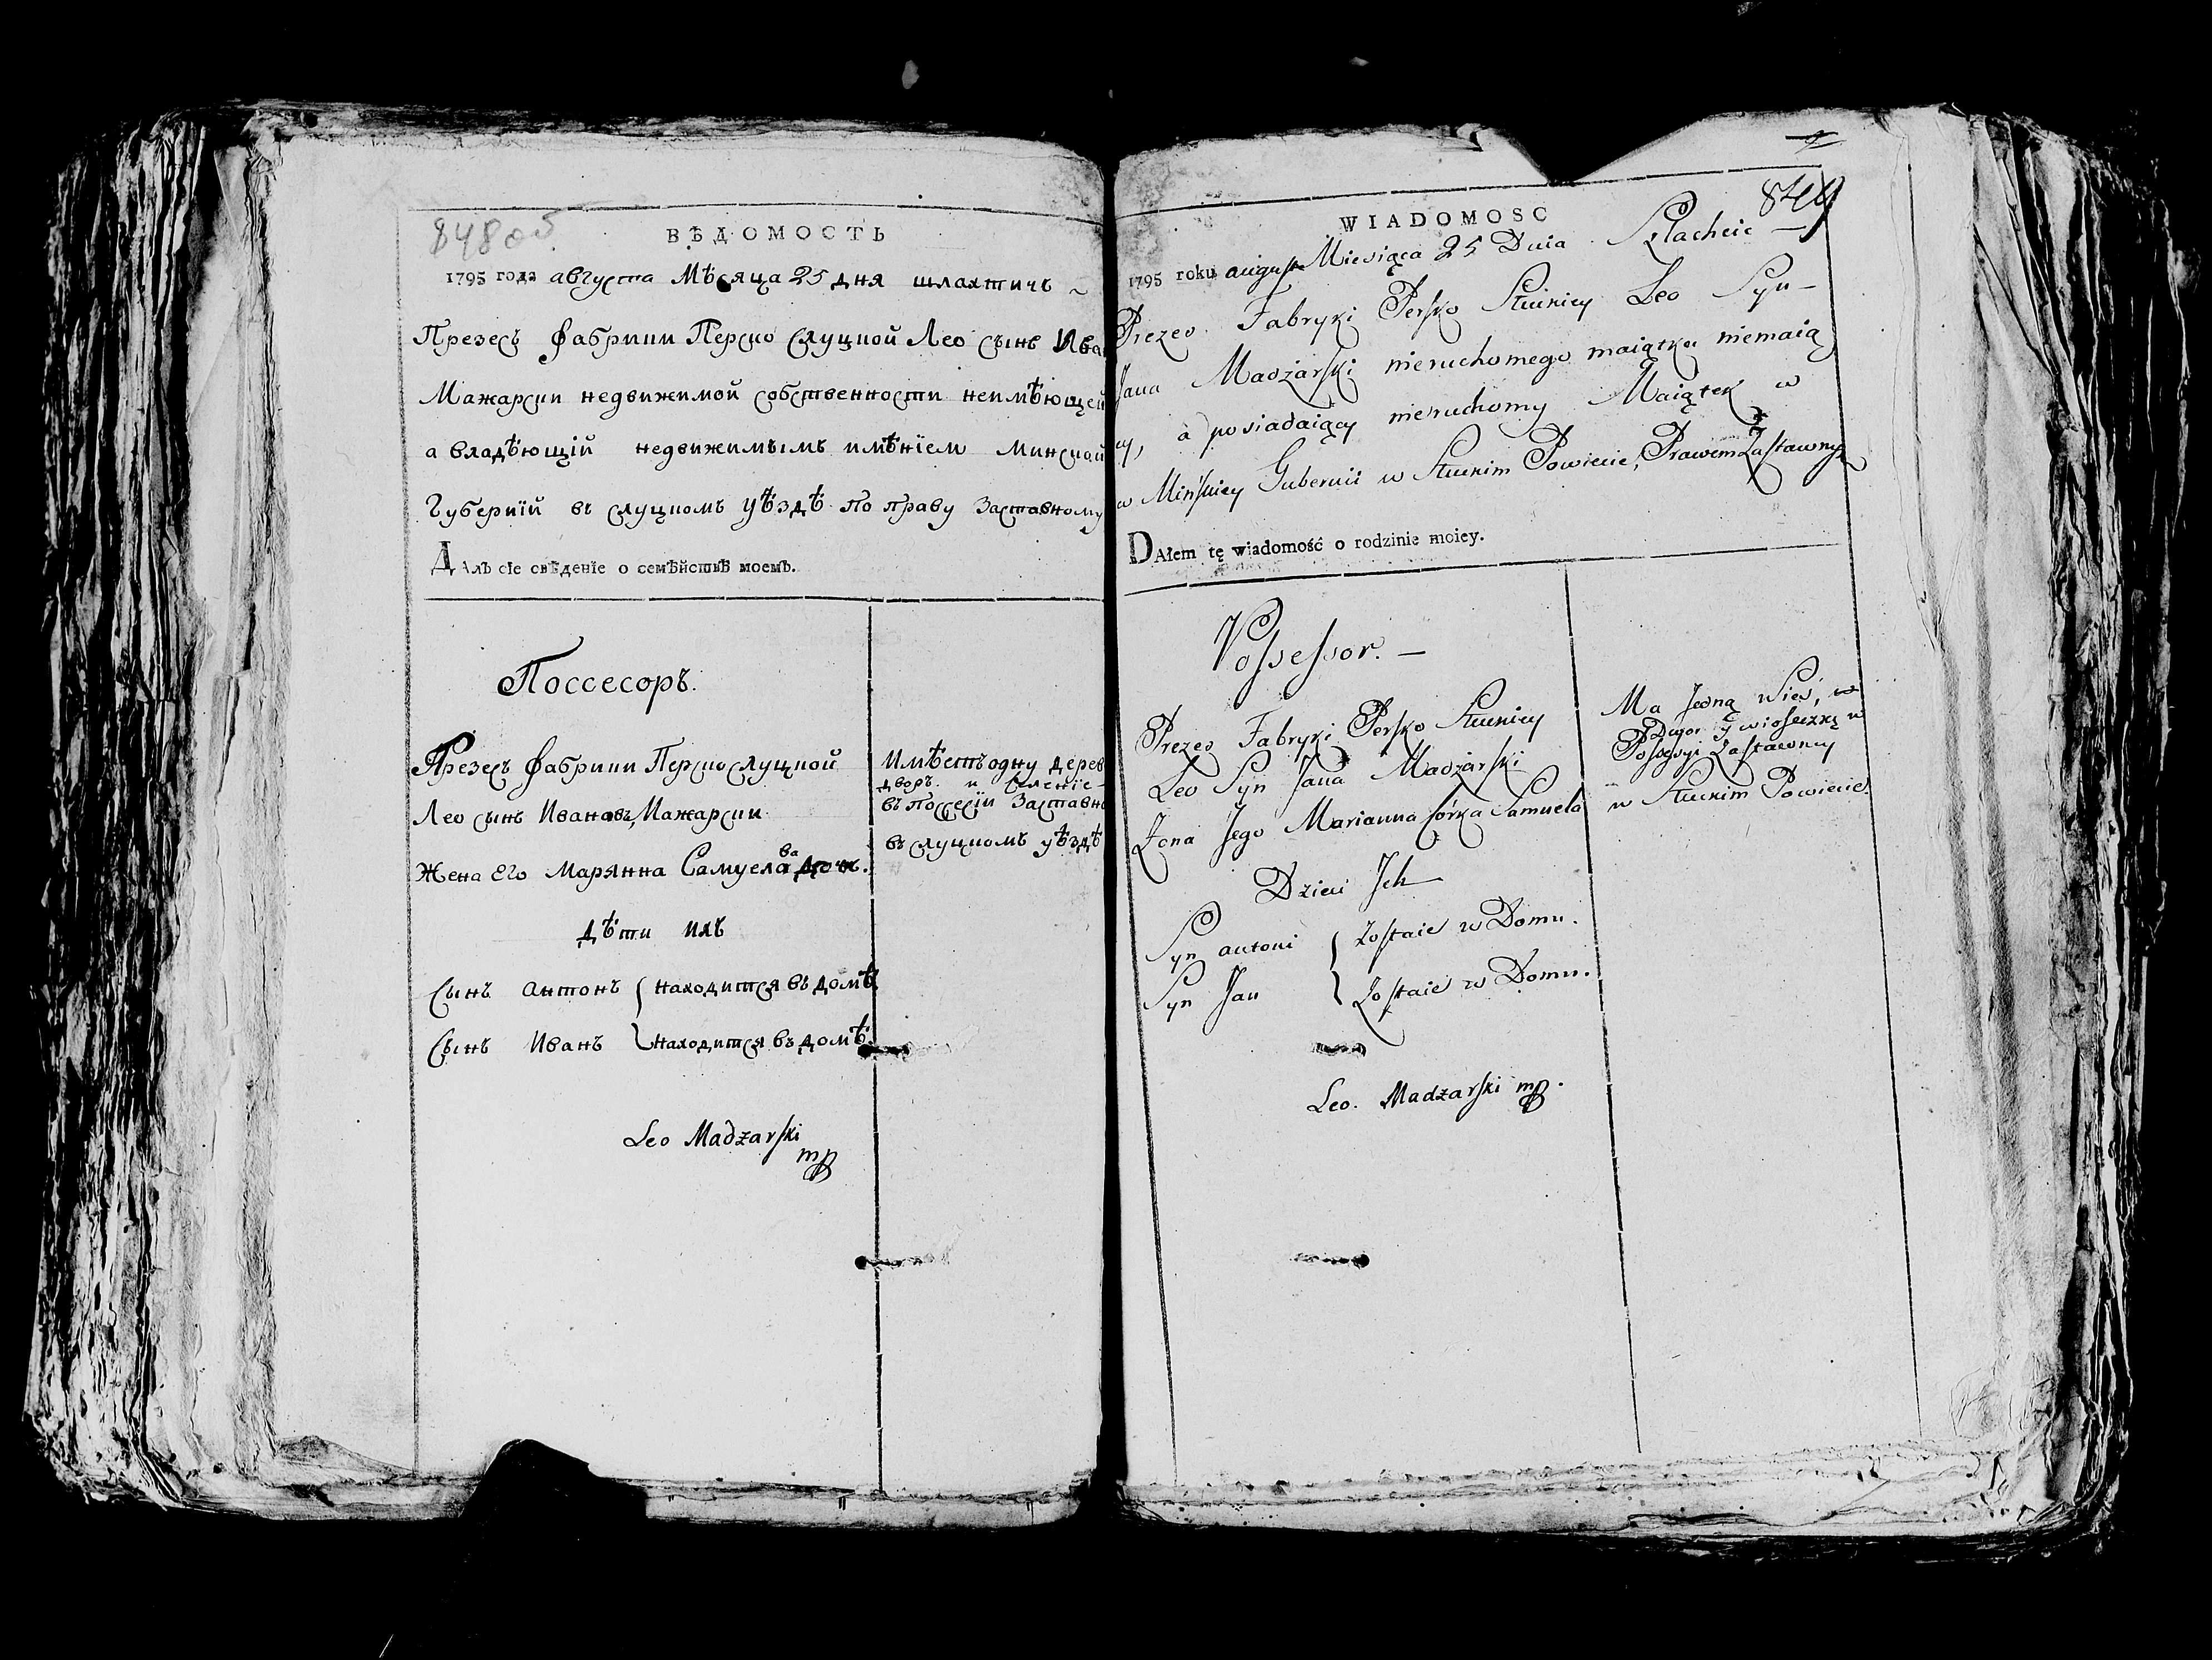 848 об
ВѢДОМОСТЬ
1795 года августа Мѣсяца 25 дня шлахтичъ
Презесъ фабрики Перско Слуцкой Лео сынъ Ива
Мажарски недвижимой собственности неимѣющей
а владѣющій недвижимымъ имѣніем Минской
Губерній въ слуцкомъ уѣздѣ по праву Заставному
ДАлъ сіе свѣденіе о семѣйствѣ моемъ.
Поссесоръ.
Презесъ фабрики Перско слуцкой
Лео сынъ Ивановъ, Мажарски
Жена Его Марянна Самуелова дочь.
дѣти ихъ
Сынъ антонъ находится въ домѣ
Сынъ Иванъ находится въ домѣ.
Имѣетъ одну дерев
дворъ и Селеніе
въ Поссесіи Заставно
въ слуцкомъ уѣздѣ
Leo Madzarski
mp
849
WIADOMOSC
1795 roku august Miesiąca 25 Dnia Szlachcic —
Prezes Fabryki Persko Słuckiey Leo Syn —
Jana Madzarski nieruchomego maiątku niemaią
cy, a posiadaiący nieruchomy Maiątek w
w Mińskiey Gubernii w Słuckim Powiecie, Prawem Zastawnym
DAłem tę wiadomość o rodzinie moiey.
Possessor. —
Prezes Fabryki Persko Słuckiey
Leo Syn Jana Madzarski
Żona Jego Marianna Córka Samuela
Dzieci Ich
Syn antoni Zostaie w Domu.
Syn Jan Zostaie w Domu.
Ma Jedną Wieś, w
Dwor y wioseczkę w
Possesyi Zastawney
w Słuckim Powiecie.
Leo. Madzarski mp.